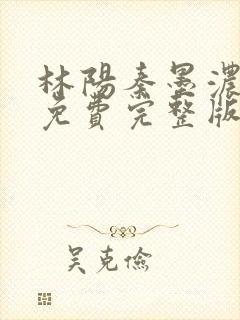 林陽秦墨濃
免費完整版
吴克儉